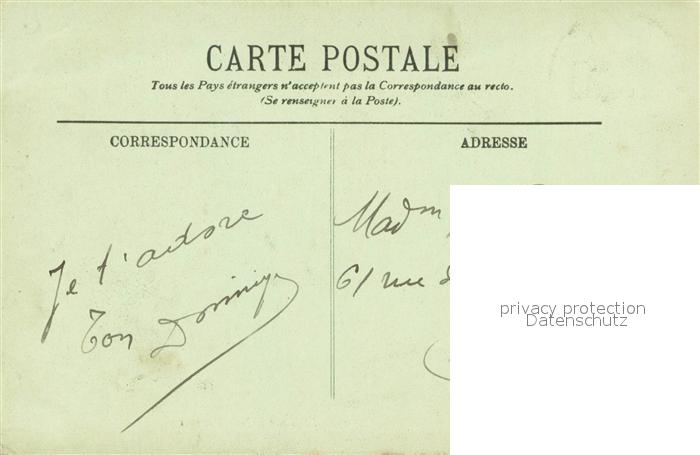 CARTE POSTALE
Tous les Pays étrangers n'acceptent pas la Correspondance au recto.
(Se renseigner à la Poste).
CORRESPONDANCE
Je t'adore
Ton
ADRESSE
Madm
61 rue
privacy protection
Datenschutz